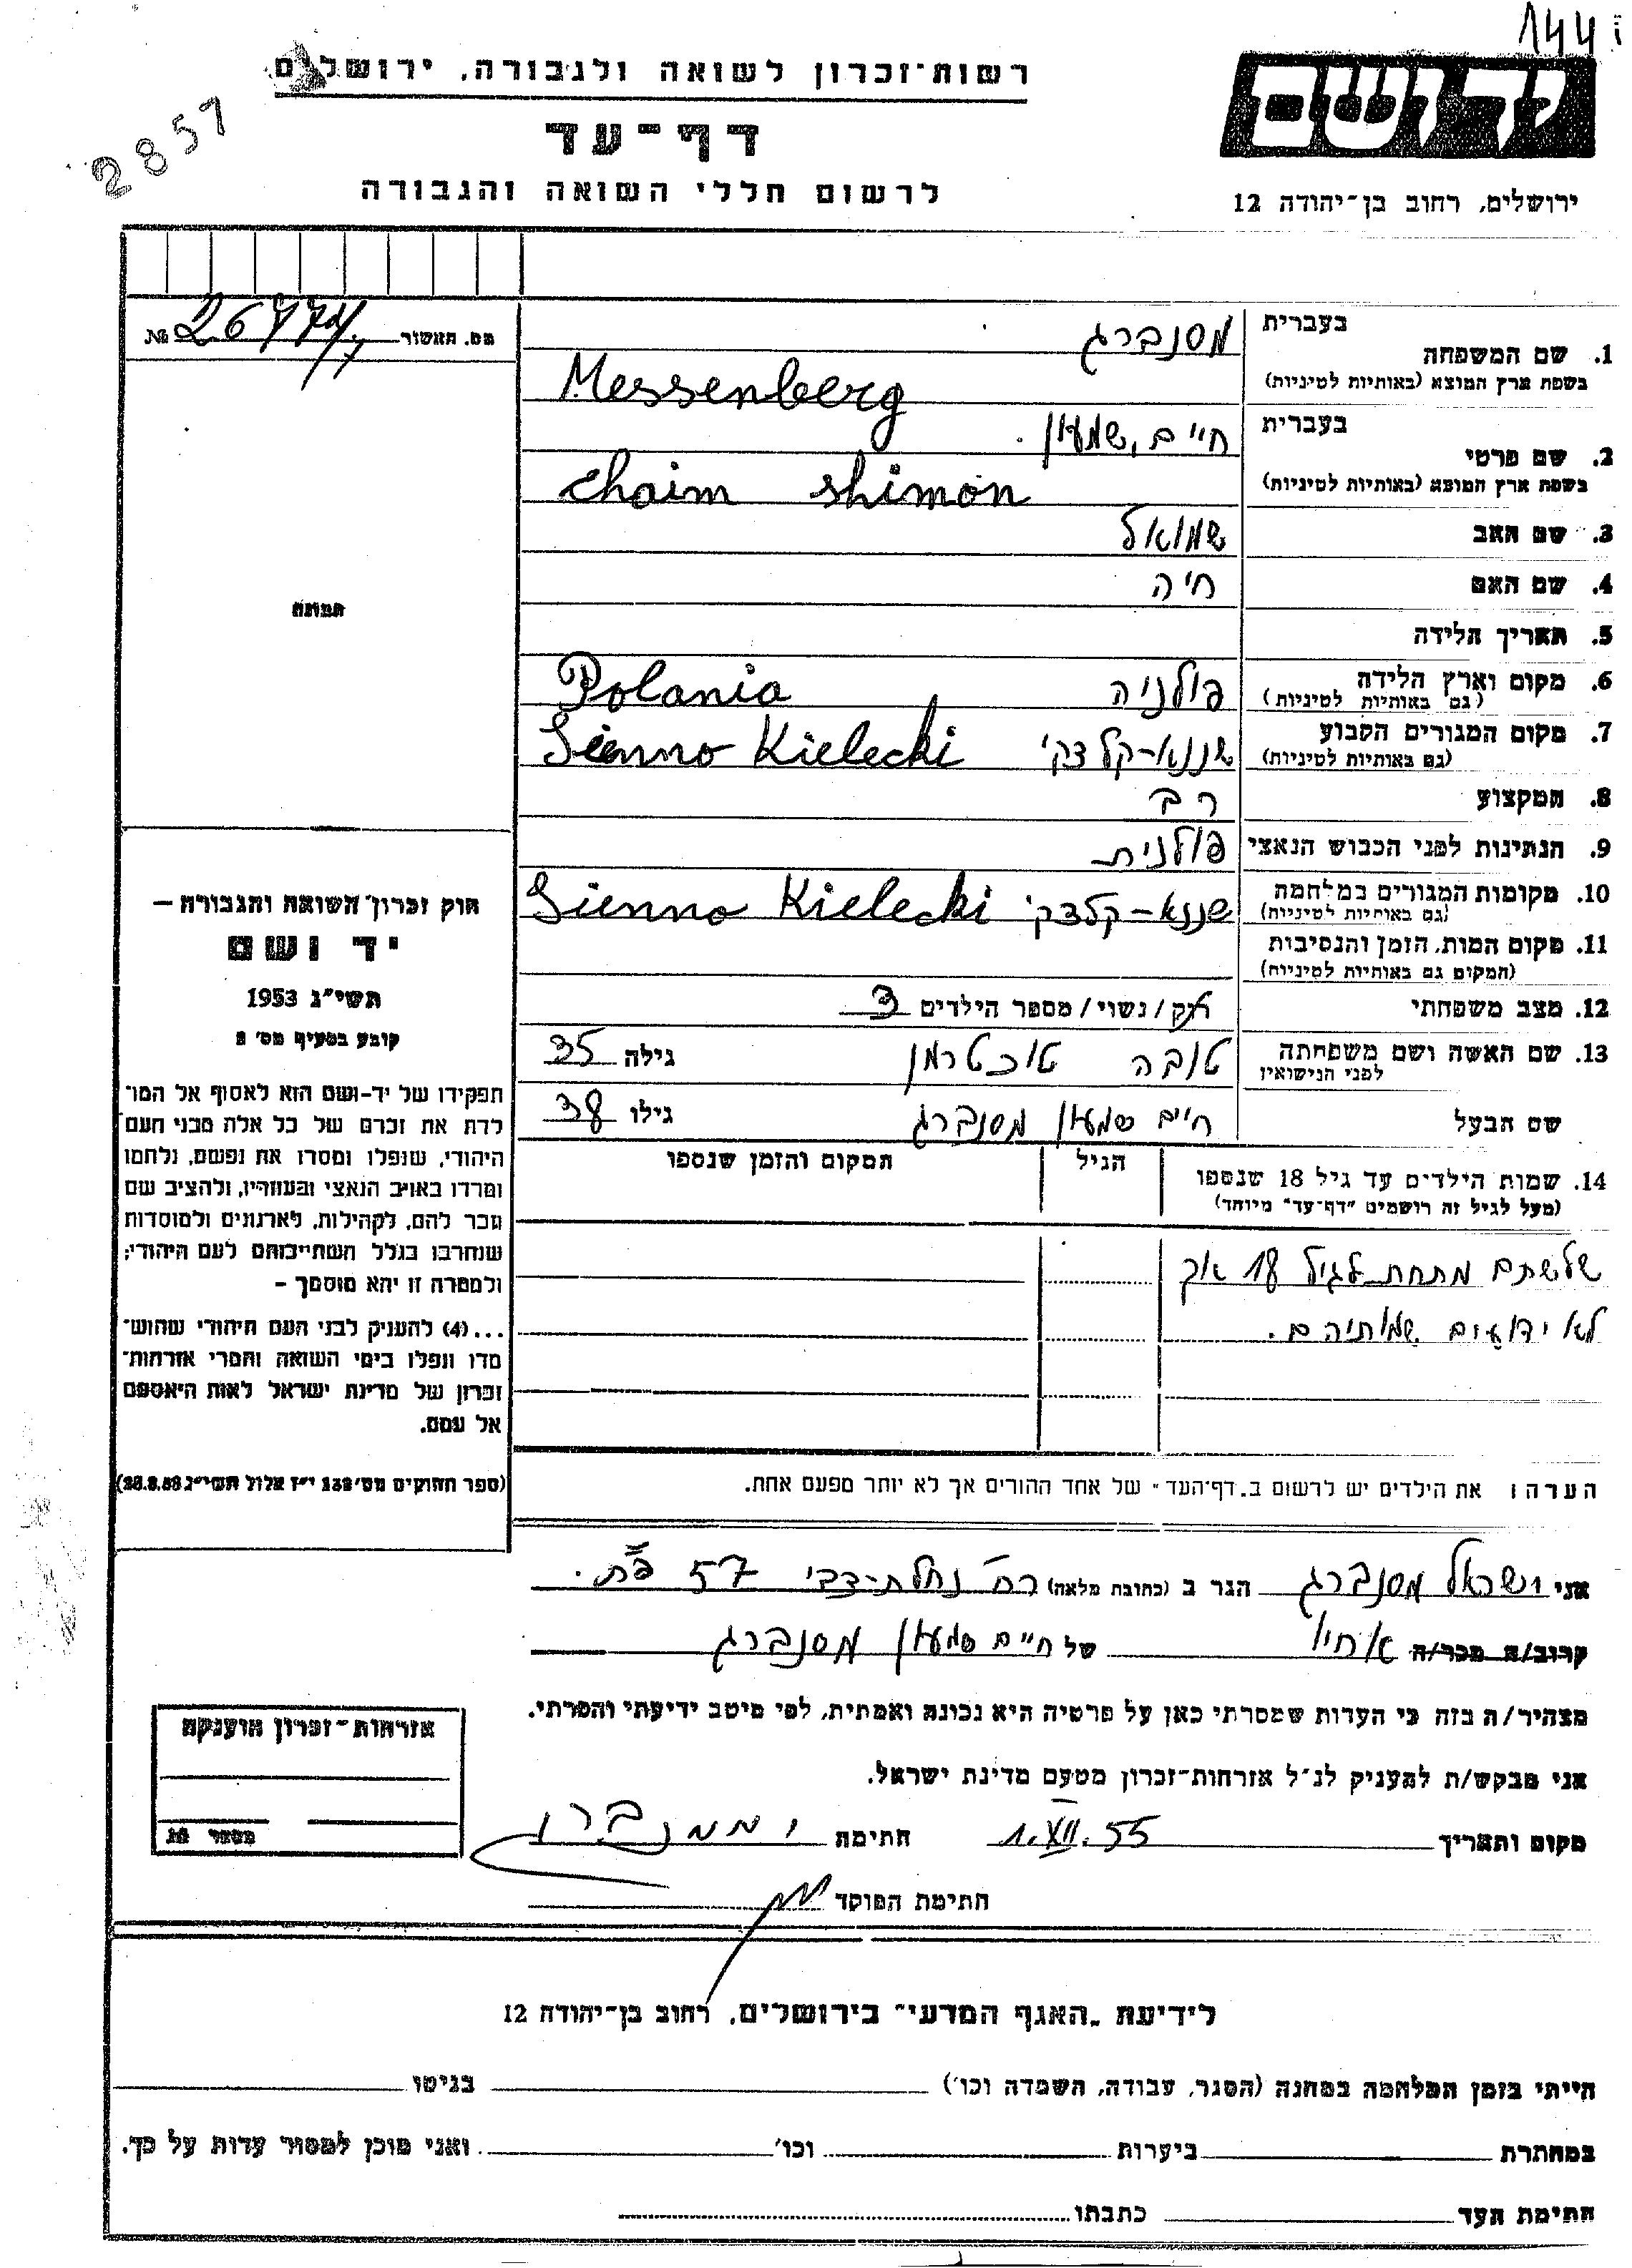 144
רשות־זכרון לשואה ולגבורה, ירושלים
ידושם
2857
דף־עד
לרשום חללי השואה והגבורה
ירושלים, רחוב בן־יהודה 12
מס. תאשור № 2677
1. שם המשפחה
בעברית מסנברג
בשפת ארץ המוצא (באותיות לטיניות) Messenberg
2. שם פרטי
בעברית חיים, שמעון
בשפת ארץ המוצא (באותיות לטיניות) Chaim Shimon
3. שם האב שמואל
4. שם האם חיה
5. תאריך הלידה
תמונה
6. מקום וארץ הלידה פולניה Polania
(גם באותיות לטיניות)
7. מקום המגורים הקבוע Sienno Kielecki
(גם באותיות לטיניות)
8. המקצוע רב
9. הנתינות לפני הכבוש הנאצי פולנית
10. מקומות המגורים במלחמה Sienno Kielecki
(גם באותיות לטיניות)
11. מקום המות, הזמן והנסיבות
(המקום גם באותיות לטיניות)
12. מצב משפחתי רק/נשוי/מספר הילדים 3
13. שם האשה ושם משפחתה טובה טוכטרמן גילה 35
לפני הנישואין
שם הבעל חיים שמעון מסנברג גילו 38
14. שמות הילדים עד גיל 18 שנספו הגיל המקום והזמן שנספו
(מעל לגיל זה רושמים "דף־עד" מיוחד)
שלשתם מתחת לגיל 18 אך
לא ידועים שמותיהם.
הערה: את הילדים יש לרשום ב„דף־העד" של אחד ההורים אך לא יותר מפעם אחת.
חוק זכרון השואה והגבורה —
יד ושם
תשי"ג 1953
קובע בסעיף מס' 2
תפקידו של יד־ושם הוא לאסוף אל המו־
לדת את זכרם של כל אלה מבני העם
היהודי, שנפלו ומסרו את נפשם, נלחמו
ומרדו באויב הנאצי ובעוזריו, ולהציב שם
וזכר להם, לקהילות, לארגונים ולמוסדות
שנחרבו בגלל השתייכותם לעם היהודי;
ולמטרה זו יהא מוסמך —
...(4) להעניק לבני העם היהודי שהוש־
מדו ונפלו בימי השואה והמרי אזרחות־
זכרון של מדינת ישראל לאות היאספם
אל עמם.
(ספר החוקים מס' 132 י"ז אלול תשי"ג 28.8.53)
אני ישראל מסנברג הגר ב (כתובת מלאה) רח' נחלת־צבי 57 פ"ת.
קרוב/ה מכר/ה אחיו של חיים שמעון מסנברג
מצהיר/ה בזה כי העדות שמסרתי כאן על פרטיה היא נכונה ואמתית, לפי מיטב ידיעתי והכרתי.
אני מבקש/ת להעניק לנ"ל אזרחות־זכרון מטעם מדינת ישראל.
מקום ותאריך 1.XII.55 חתימה
חתימת הפוקד
אזרחות־זכרון הוענקה
מספר
לידיעת „האגף המדעי" בירושלים, רחוב בן־יהודה 12
הייתי בזמן המלחמה במחנה (הסגר, עבודה, השמדה וכו') בגיטו
במחתרת ביערות וכו' ואני מוכן למסור עדות על כך.
חתימת העד כתבתו